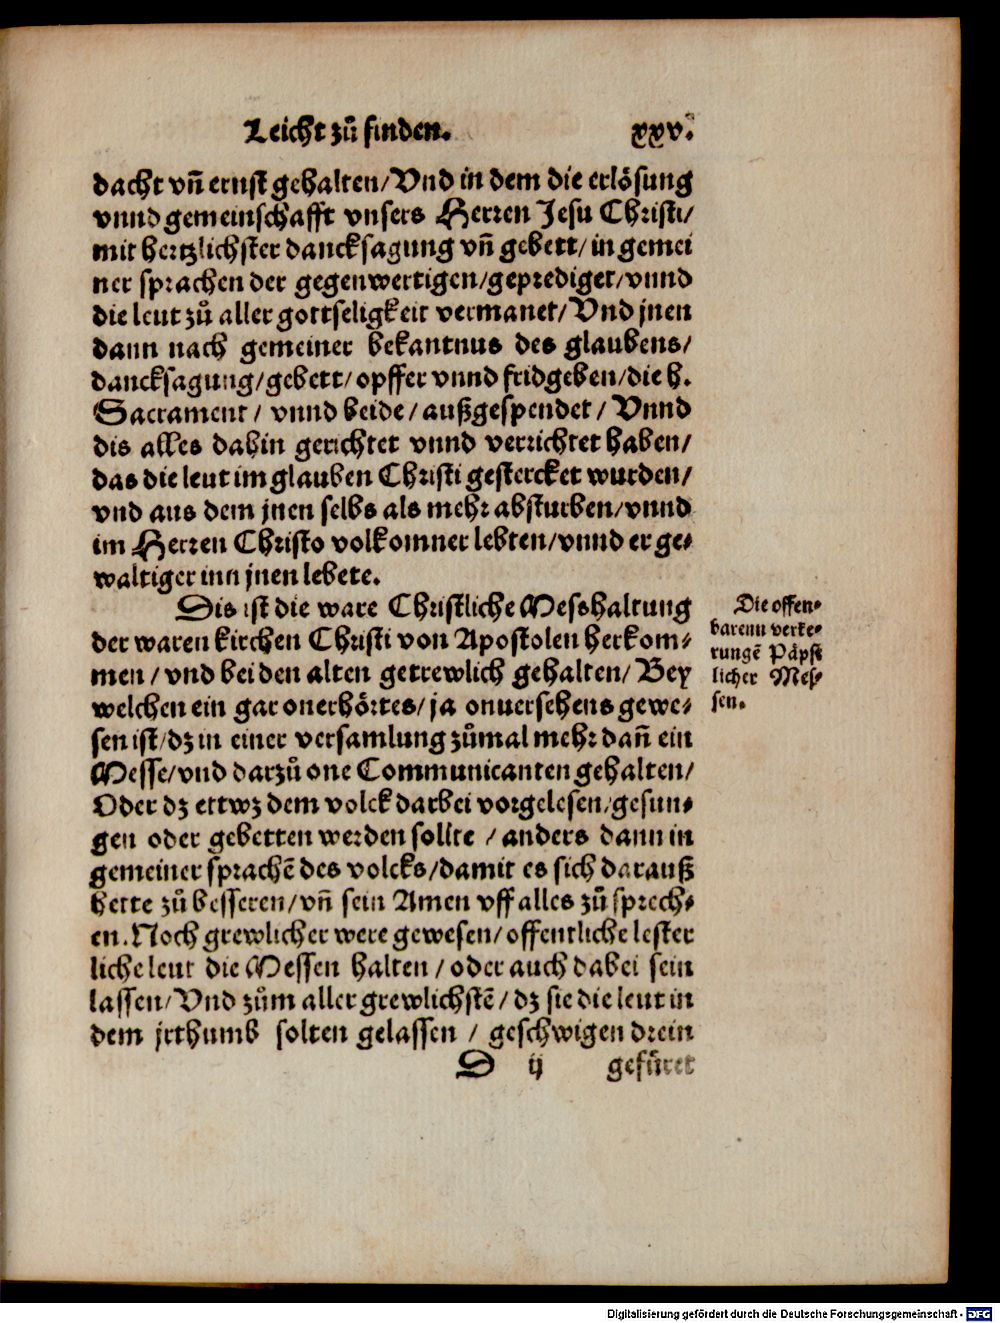 Leicht zů finden. xxv.
dacht vñ ernst gehalten/Vnd in dem die erlösung
vnnd gemeinschafft vnsers Herren Jesu Christi/
mit hertzlichster dancksagung vñ gebett/in gemei
ner sprachen der gegenwertigen/geprediget/vnnd
die leut zů aller gottseligkeit vermanet/Vnd jnen
dann nach gemeiner bekantnus des glaubens/
dancksagung/gebett/opffer vnnd fridgeben/die h.
Sacrament/ vnnd beide/außgespendet/Vnnd
dis alles dahin gerichtet vnnd verrichtet haben/
das die leut im glauben Christi gestercket wurden/
vnd aus dem jnen selbs als mehr absturben/vnnd
im Herren Christo volkomner lebten/vnnd er ge-
waltiger inn jnen lebete.
Dis ist die ware Christliche Messhaltung
der waren kirchen Christi von Apostolen herkom-
men/vnd bei den alten getrewlich gehalten/Bey
welchen ein gar onerhörtes/ja onuersehens gewe-
sen ist/dz in einer versamlung zůmal mehr dañ ein
Messe/vnd darzů one Communicanten gehalten/
Oder dz ettwz dem volck darbei vorgelesen/gesun-
gen oder gebetten werden sollte/anders dann in
gemeiner sprachē des volcks/damit es sich darauß
hette zů besseren/vñ sein Amen vff alles zů sprech-
en. Noch grewlicher were gewesen/offentliche lester
liche leut die Messen halten/oder auch dabei sein
lassen/Vnd zům aller grewlichstē/dz sie die leut in
dem jrthumb solten gelassen/geschwigen drein
D ij gefůret
Die offen-
barenn verke-
rungē Påpst
licher Mes-
sen.
Digitalisierung gefördert durch die Deutsche Forschungsgemeinschaft - DFG